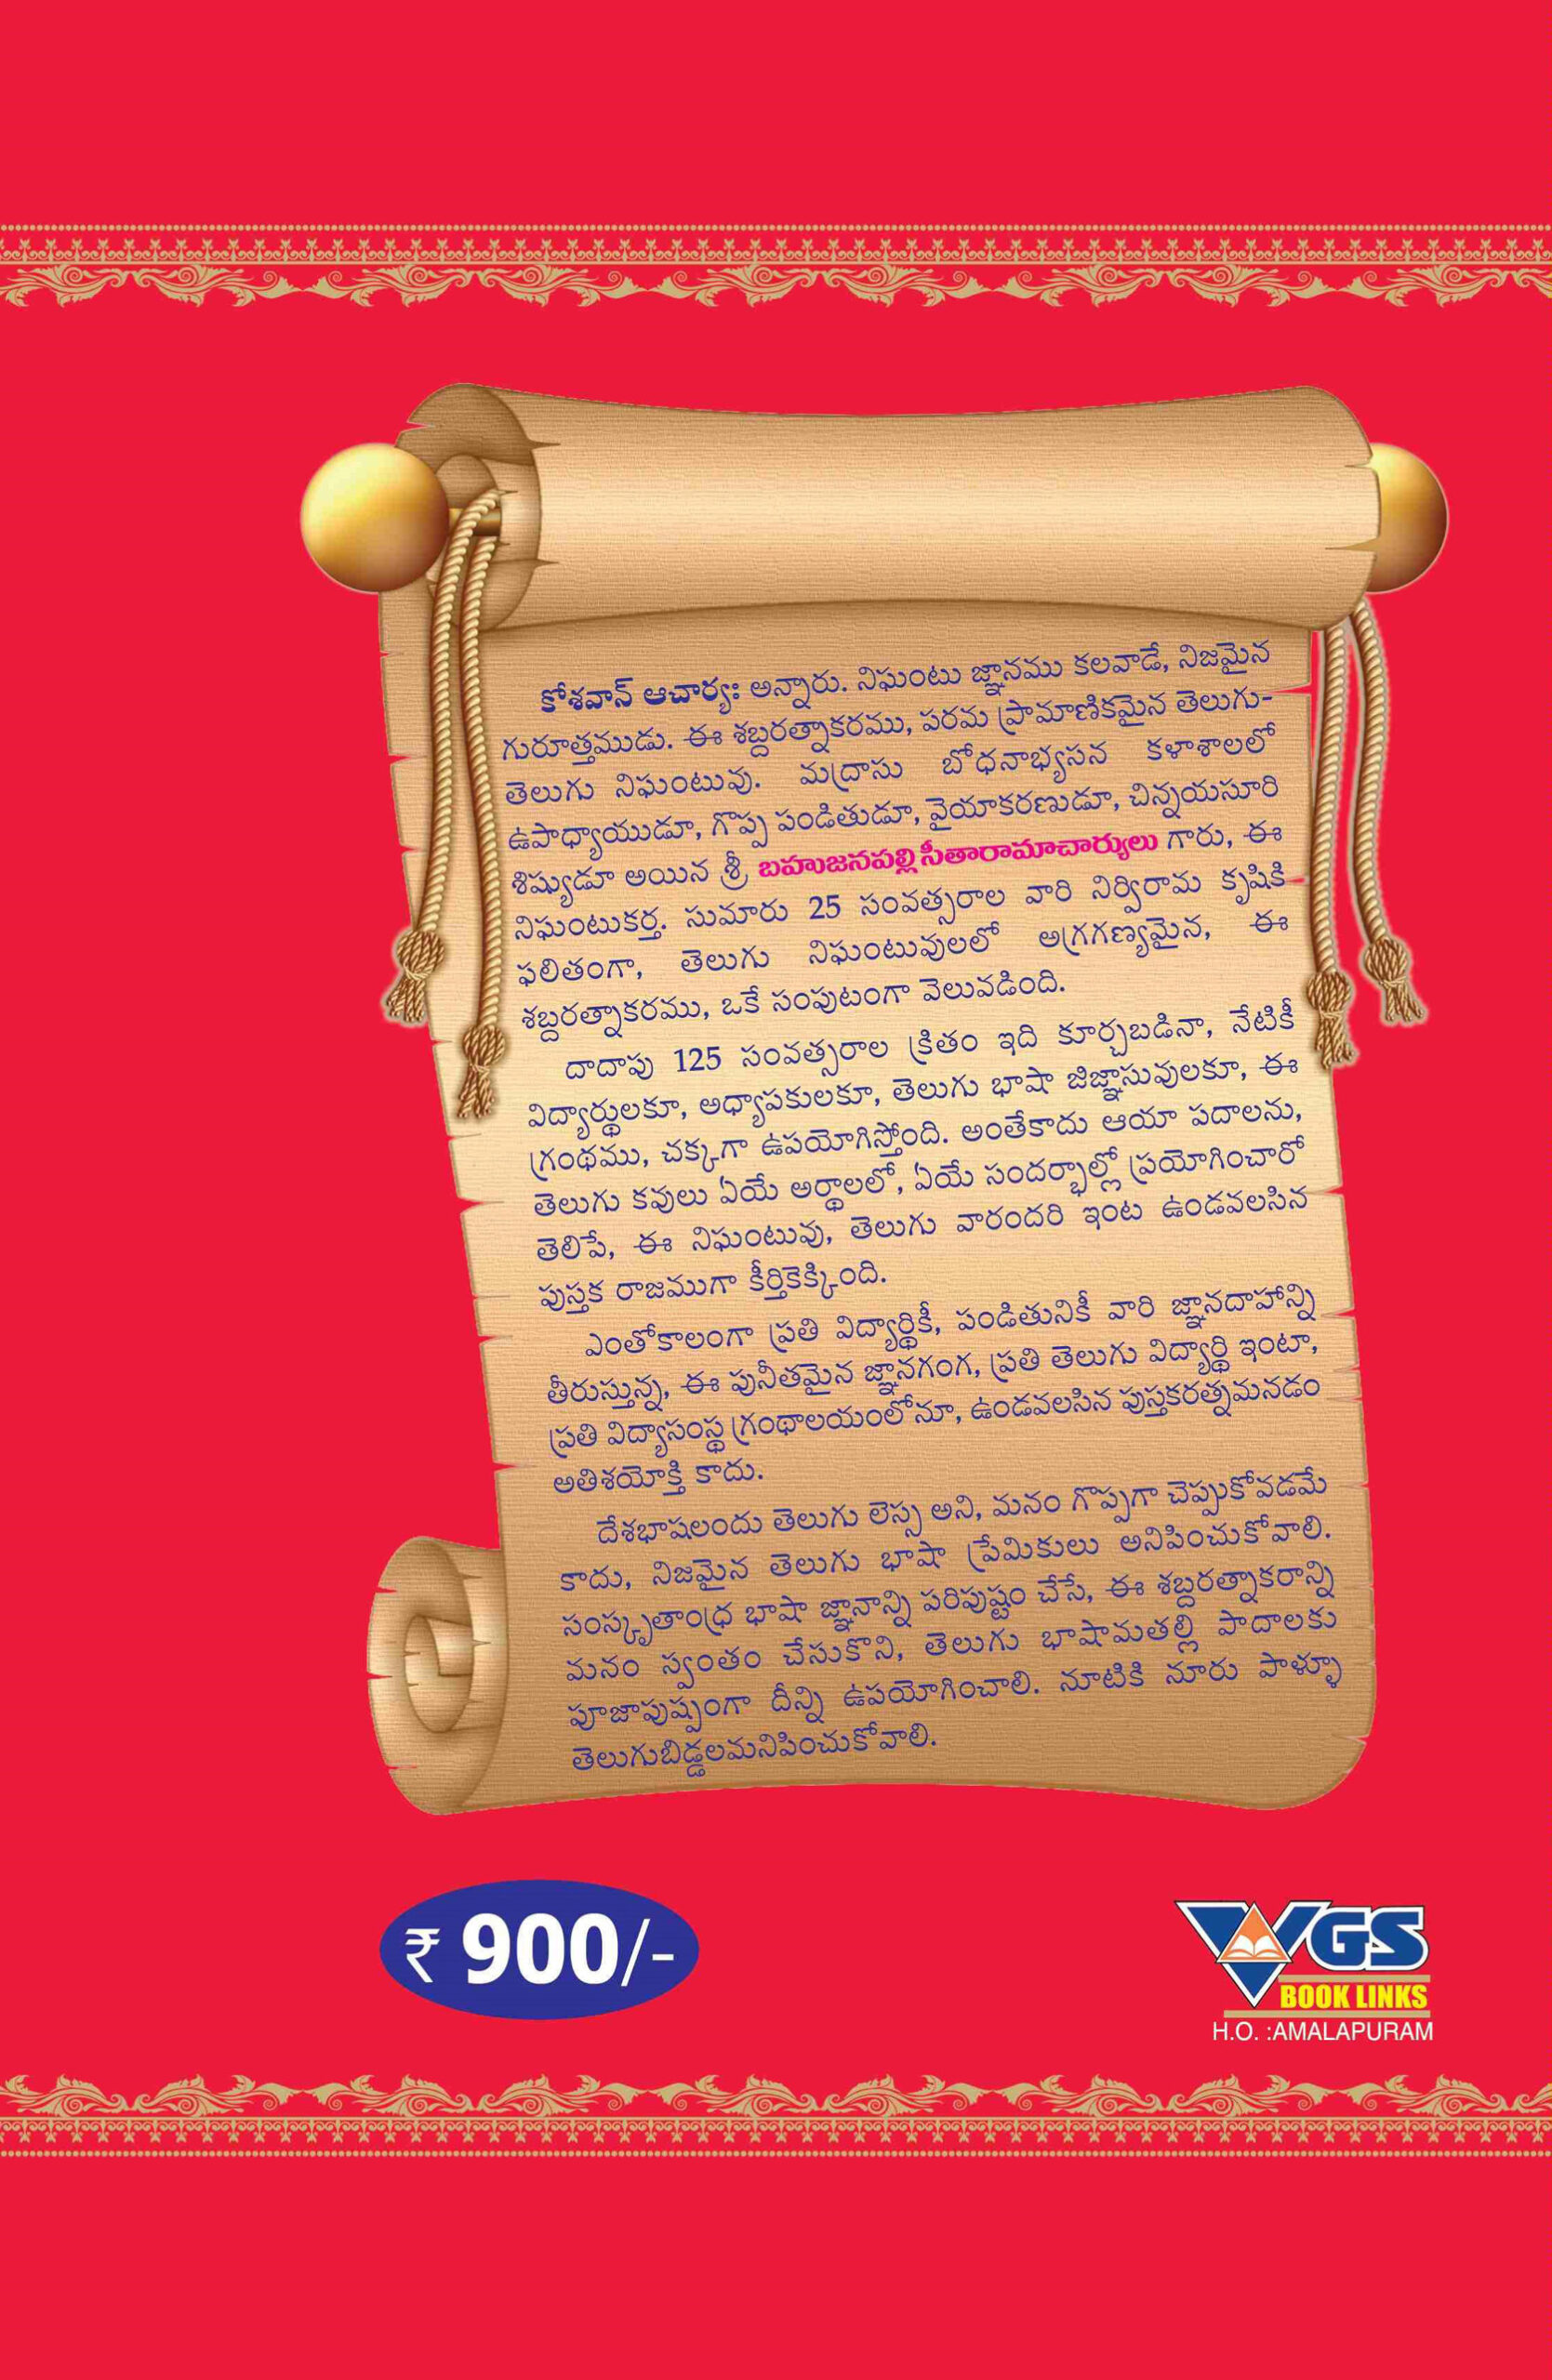 కోశవాన్ ఆచార్యః అన్నారు. నిఘంటు జ్ఞానము కలవాడే, నిజమైన
గురూత్తముడు. ఈ శబ్దరత్నాకరము, పరమ ప్రామాణికమైన తెలుగు-
తెలుగు నిఘంటువు. మద్రాసు బోధనాభ్యసన కళాశాలలో
ఉపాధ్యాయుడూ, గొప్ప పండితుడూ, వైయాకరణుడూ, చిన్నయసూరి
శిష్యుడూ అయిన శ్రీ బహుజనపల్లి సీతారామాచార్యులు గారు, ఈ
నిఘంటుకర్త. సుమారు 25 సంవత్సరాల వారి నిర్విరామ కృషికి
ఫలితంగా, తెలుగు నిఘంటువులలో అగ్రగణ్యమైన, ఈ
శబ్దరత్నాకరము, ఒకే సంపుటంగా వెలువడింది.
దాదాపు 125 సంవత్సరాల క్రితం ఇది కూర్చబడినా, నేటికీ
విద్యార్థులకూ, అధ్యాపకులకూ, తెలుగు భాషా జిజ్ఞాసువులకూ, ఈ
గ్రంథము, చక్కగా ఉపయోగిస్తోంది. అంతేకాదు ఆయా పదాలను,
తెలుగు కవులు ఏయే అర్థాలలో, ఏయే సందర్భాల్లో ప్రయోగించారో
తెలిపే, ఈ నిఘంటువు, తెలుగు వారందరి ఇంట ఉండవలసిన
పుస్తక రాజముగా కీర్తికెక్కింది.
ఎంతోకాలంగా ప్రతి విద్యార్థికీ, పండితునికీ వారి జ్ఞానదాహాన్ని
తీరుస్తున్న, ఈ పునీతమైన జ్ఞానగంగ, ప్రతి తెలుగు విద్యార్థి ఇంటా,
ప్రతి విద్యాసంస్థ గ్రంథాలయంలోనూ, ఉండవలసిన పుస్తకరత్నమనడం
అతిశయోక్తి కాదు.
దేశభాషలందు తెలుగు లెస్స అని, మనం గొప్పగా చెప్పుకోవడమే
కాదు, నిజమైన తెలుగు భాషా ప్రేమికులు అనిపించుకోవాలి.
సంస్కృతాంధ్ర భాషా జ్ఞానాన్ని పరిపుష్టం చేసే, ఈ శబ్దరత్నాకరాన్ని
మనం స్వంతం చేసుకొని, తెలుగు భాషామతల్లి పాదాలకు
పూజాపుష్పంగా దీన్ని ఉపయోగించాలి. నూటికి నూరు పాళ్ళూ
తెలుగుబిడ్డలమనిపించుకోవాలి.
₹ 900/-
VGS
BOOK LINKS
H.O. :AMALAPURAM